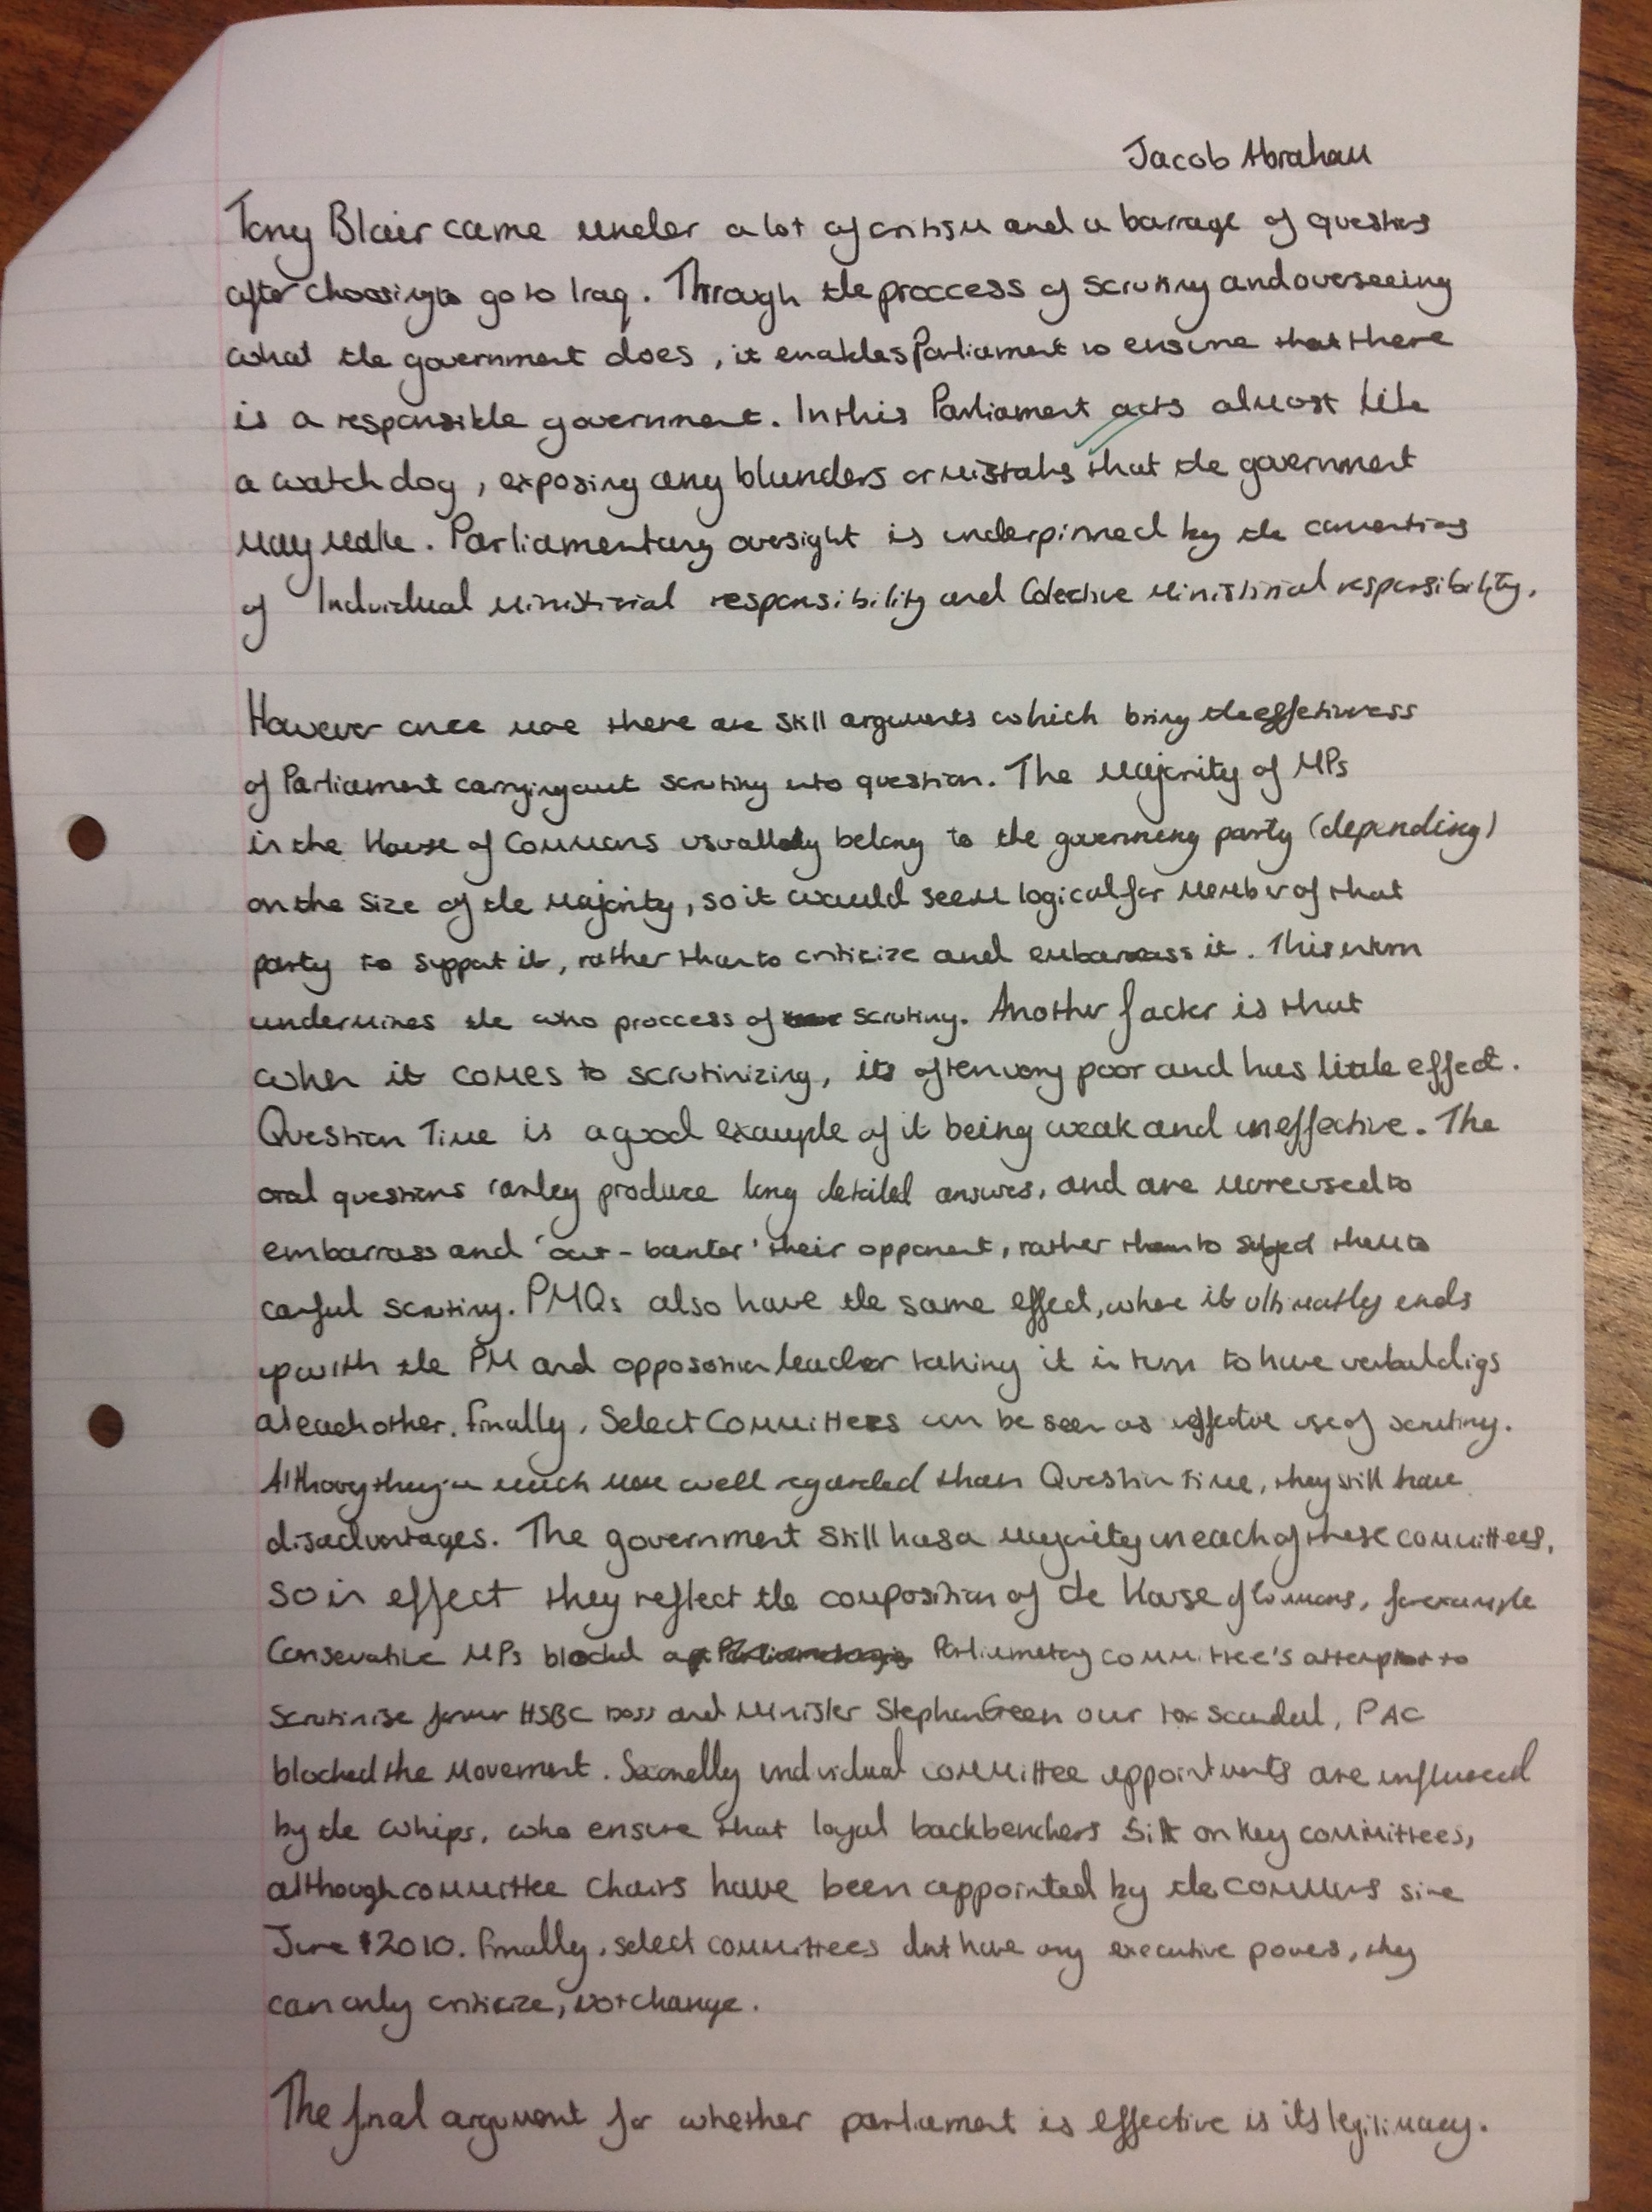 Jacob Abraham
Tony Blair came under a lot of critism and a barrage of questions
after choosing to go to Iraq. Through the proccess of scrutiny and overseeing
what the government does, it enables Parliament to ensure that there
is a responsible government. In this Parliament acts almost like
a watch dog, exposing any blunders or mistakes that the government
may make. Parliamentary oversight is underpinned by the conventions
of Individual Ministirial responsibility and Colective Ministirial responsibility.
However once more there are still arguments which bring the effetiveness
of Parliament carrying out scrutiny into question. The majority of MPs
in the House of Commons usually belong to the governing party (depending)
on the size of the majority, so it would seem logical for member of that
party to support it, rather than to criticize and embarrass it. This in turn
undermines the who proccess of scrutiny. Another factor is that
when it comes to scrutinizing, its often very poor and has little effect.
Question Time is a good example of it being weak and ineffective. The
oral questions rarley produce long detailed answers, and are more used to
embarrass and 'out-banter' their opponent, rather than to subject them to
careful scrutiny. PMQs also have the same effect, where it ultimatly ends
up with the PM and opposotion leader taking it in turn to have verbal digs
at each other. Finally, Select Committees can be seen as effective use of scrutiny.
Although they're much more well regarded than Question time, they still have
disadvantages. The government still has a majority in each of these committees,
so in effect they reflect the composition of the House of Commons, for example
Conservative MPs blocked a Parliamentary committee's attempt to
scrutinise former HSBC boss and Minister Stephen Green our tax scandal, PAC
blocked the movement. Secondly individual committee appointments are influenced
by the whips, who ensure that loyal backbenchers sit on key committees,
although committee chairs have been appointed by the commons since
June 2010. Finally, select committees dont have any executive powers, they
can only criticize, not change.
The final argument for whether parliament is effective is its legitimacy.